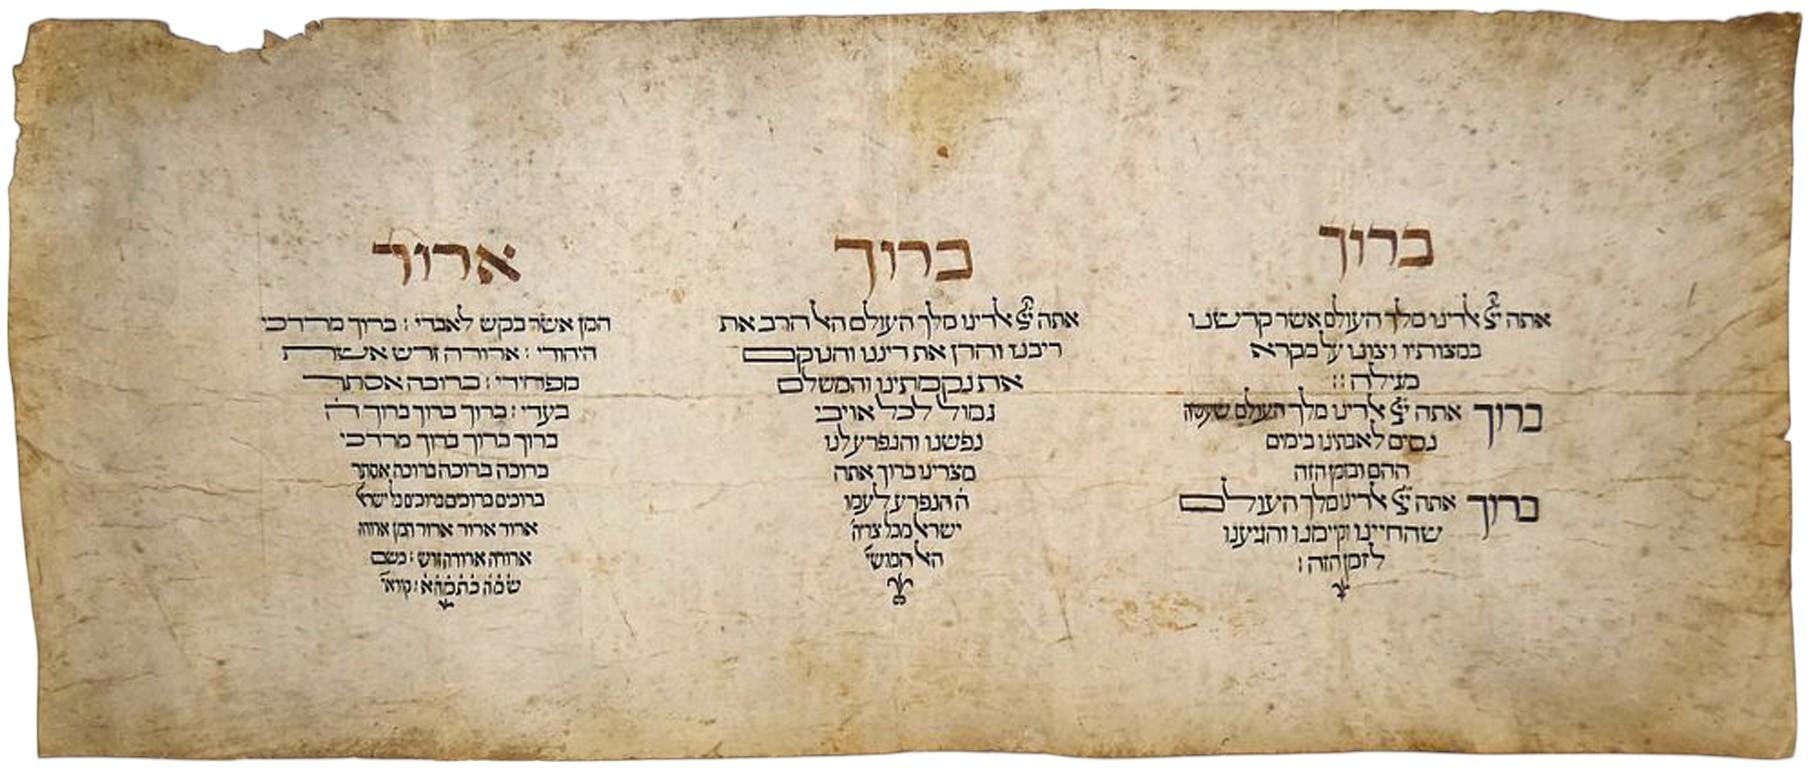 ברוך
אתה ייי אלדינו מלך העולם אשר קדשנו
במצותיו וצונו על מקרא
מגילה ::
ברוך אתה ייי אלדינו מלך העולם שעשה
נסים לאבתינו בימים
ההם ובזמן הזה
ברוך אתה ייי אלדינו מלך העולם
שהחיינו וקיימנו והגיענו
לזמן הזה :
ברוך
אתה ייי אלדינו מלך העולם האל הרב את
ריבנו והדן את דיננו והנוקם
את נקמתינו והמשלם
גמול לכל אויבי
נפשנו והנפרע לנו
מצרינו ברוך אתה
הנפרע לעמו
ישראל מכל צריה
האל המושי
ארור
המן אשר בקש לאבדי : ברוך מרדכי
היהודי : ארורה זרש אשת
מפחידי : ברוכה אסתר
בעדי : ברוך ברוך ברוך ה
ברוך ברוך ברוך מרדכי
ברוכה ברוכה ברוכה אסתר
ברוכים ברוכים ברוכים כל ישר
ארור ארור ארור המן ארורה
ארורה ארורה זרש : כשם